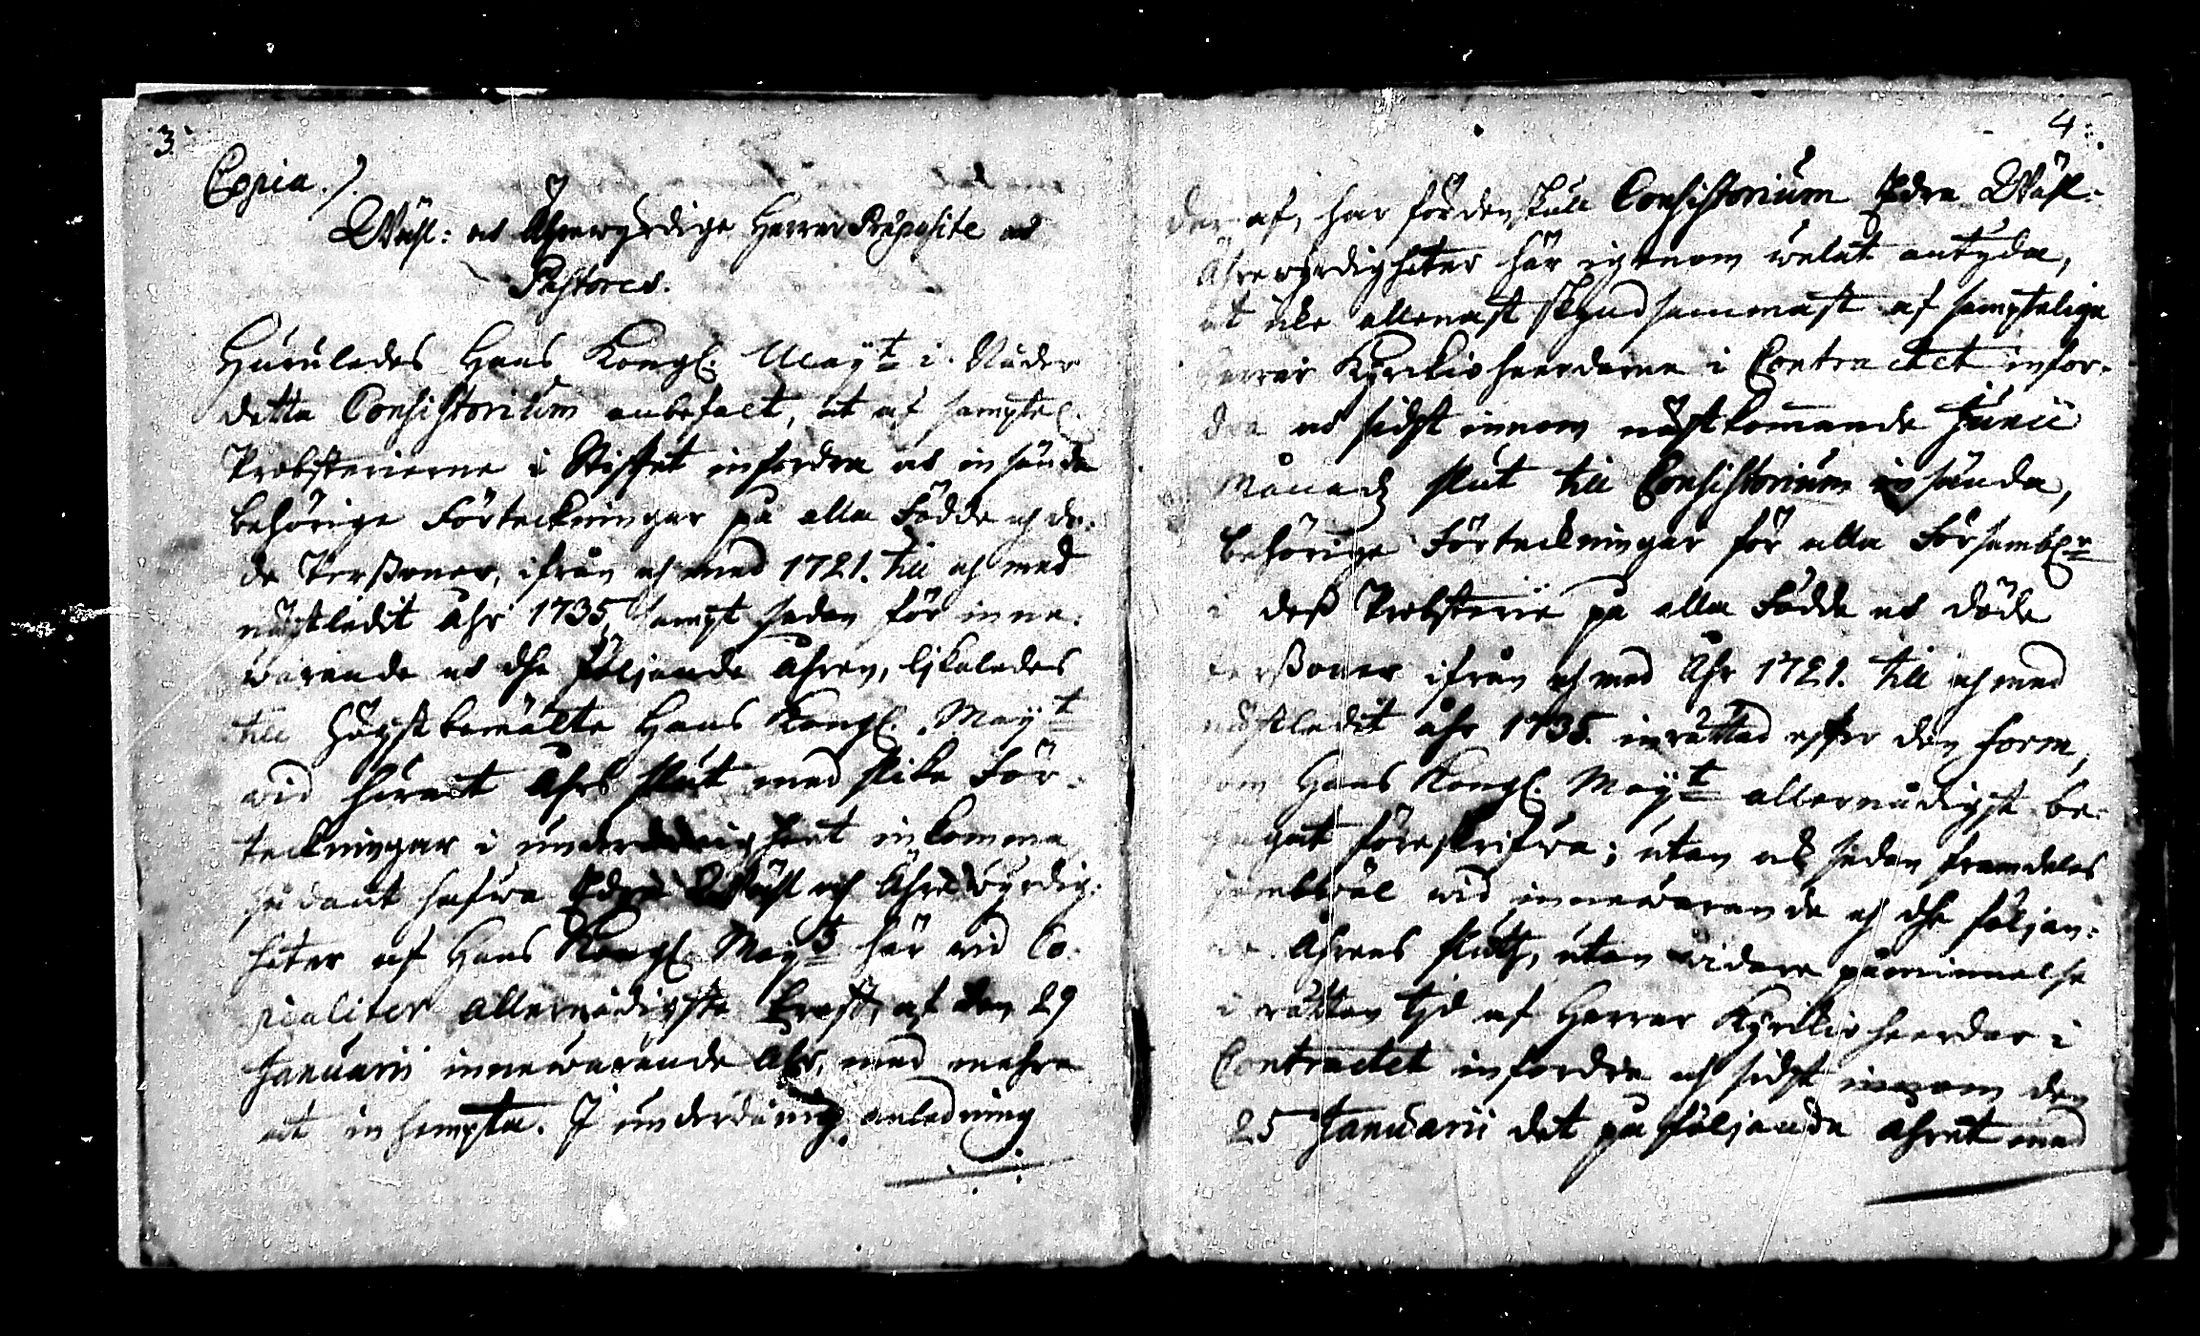 3.
Copia ./.
Wähl: och Ährewyrdige Herrar Præposite och
Pastores.
Huruledes Hans Kongl. Mayt i Nåder
detta Consistorium anbefalt, at af samptel.
Probsterierne i Stiftet infordra och insända
behörige Förteckningar på alla Födde och dö-
de Perssoner, ifrån och med 1721. till och med
nästledit åhr 1735, sampt sedan för inne-
warande och dhe följande åhren, lijkaledes
till högstbemälte Hans Kongl. Mayt
wid hwart åhrs slut med slika För-
teckningar i underdånighet inkomma
sådant hafwa Edra Wähl och Ährewyrdig-
heter af Hans Kongl. Mayts här wid Co-
pialiter allernådigste Bref, af den 29
Januarii innewarande åhr, med mehra
at inhempta. I underdånig anledning
4.
der af, har fördenskull Consistorium Edra Wähl-
Ährewyrdigheter här igenom welat antyda,
at icke allenast skyndsammast af samptelige
Herrar Kyrckioheerdarne i Contractet infor-
dra och sidst innom nästkommande Junii
Månadz slut till Consistorium insända,
behörige Förteckningar för alla Församblr
i dess Probsterie på alla Födde och döde
Perssoner ifrån och med Åhr 1721. till och med
nästledit åhr 1735. inrättad efter den form,
som Hans Kongl. Mayt allernådigst be-
hagat föreskrifwa; utan ock sedan framdeles
jembwäl wid innewarande och dhe följan-
de Åhrens slut, utan widare påminnelse
i rättan tijd af Herrar Kyrckioheerdar i
Contractet infordra och sidst innom den
25 Januarii det på följande åhret med